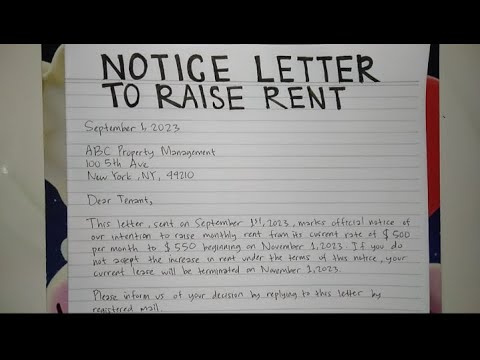 NOTICE LETTER
TO RAISE RENT
September 1, 2023
ABC Property Management
100 5th Ave
New York, NY, 49210
Dear Tenant,
This letter, sent on September 1st, 2023, marks official notice of
our intention to raise monthly rent from its current rate of $500
per month to $550 beginning on November 1, 2023. If you do
not accept the increase in rent under the terms of this notice, your
current lease will be terminated on November 1, 2023.
Please inform us of your decision by replying to this letter by
registered mail.